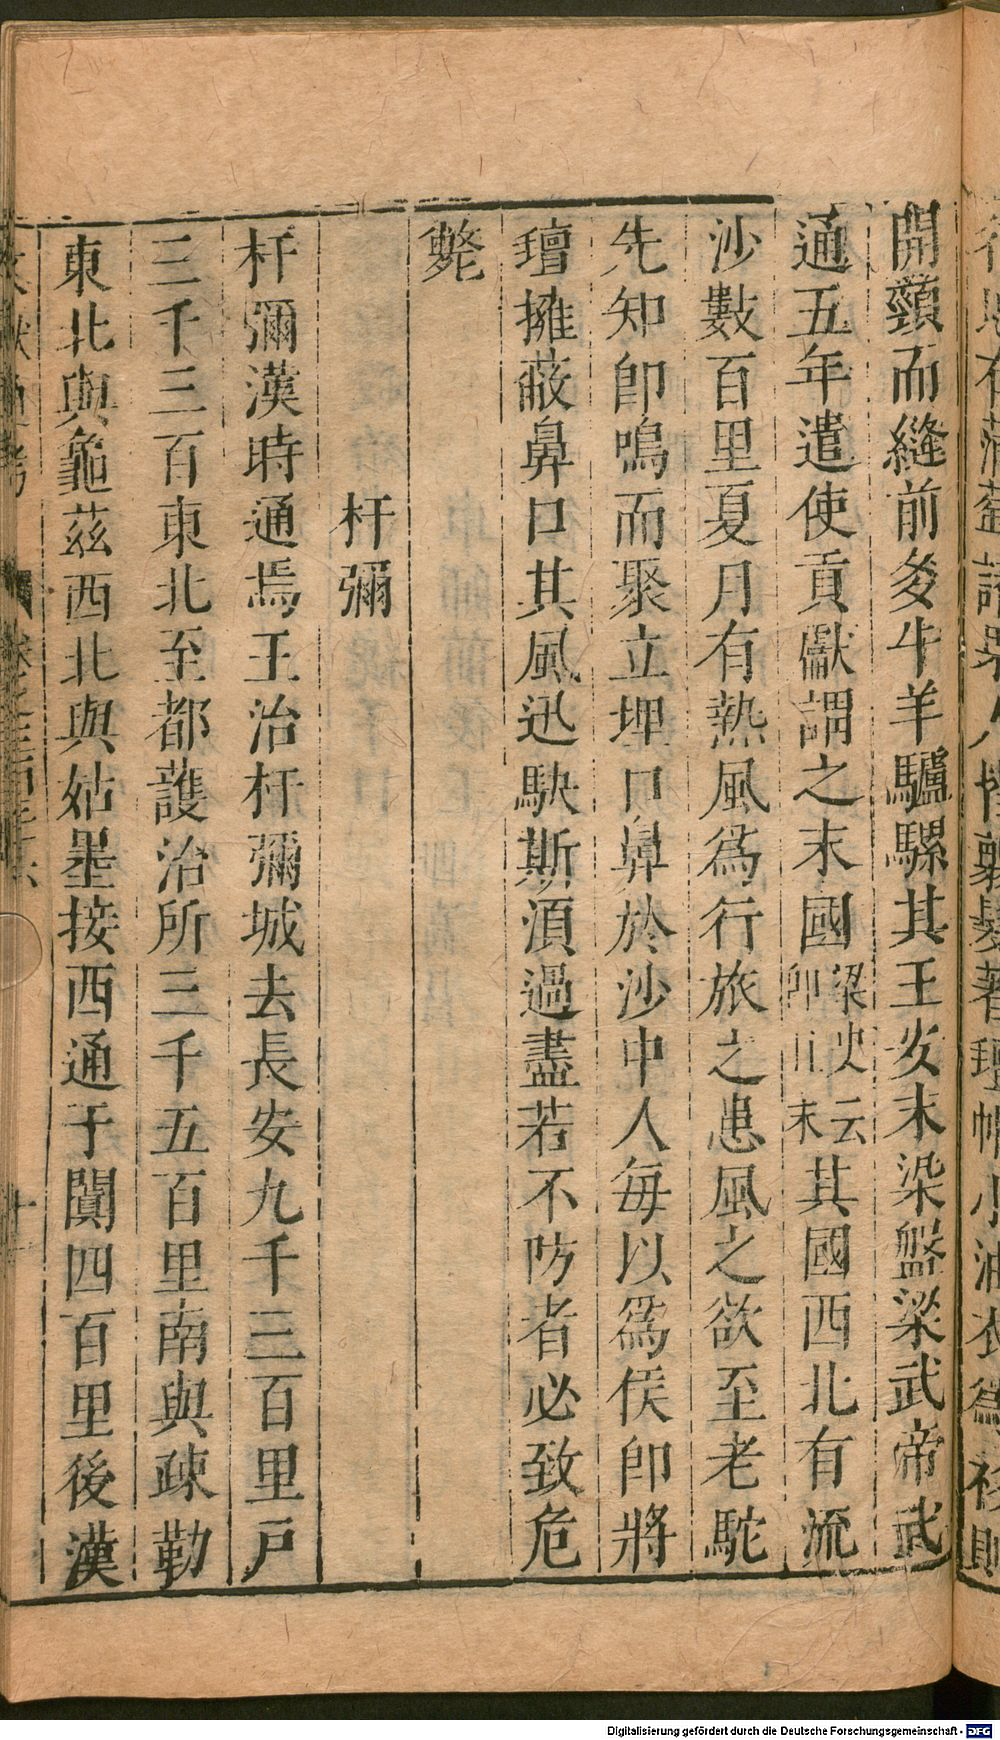 開頸而縫前多牛羊驢騾其王安末染盤梁武帝武
通五年遣使貢獻謂之末國梁史云卽山末其國西北有流
沙數百里夏月有熱風爲行旅之患風之欲至老駝
先知卽鳴而聚立埋口鼻於沙中人每以爲侯卽將
氊擁蔽鼻口其風迅駃斯須過盡若不防者必致危
斃
杅彌
杅彌漢時通焉王治杅彌城去長安九千三百里戶
三千三百東北至都護治所三千五百里南與疎勒
東北與龜茲西北與姑墨接西通于闐四百里後漢
Digitalisierung gefördert durch die Deutsche Forschungsgemeinschaft - DFG